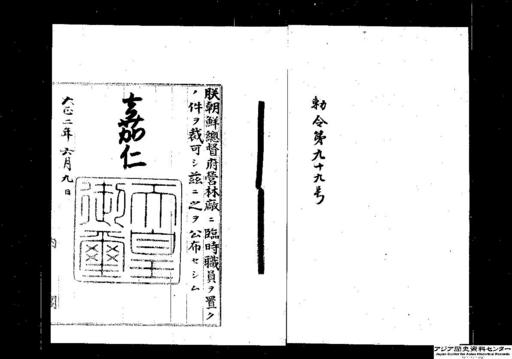 勅令第九十九号
朕朝鮮總督府營林廠ニ臨時職員ヲ置ク
ノ件ヲ裁可シ茲ニ之ヲ公布セシム
嘉仁
天皇
御璽
大正二年六月九日
内閣
アジア歴史資料センター
Japan Center for Asian Historical Records